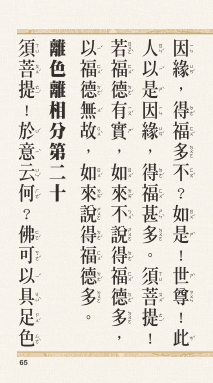 因緣，得福多不？如是！世尊！此
人以是因緣，得福甚多。須菩提！
若福德有實，如來不說得福德多，
以福德無故，如來說得福德多。
離色離相分第二十
須菩提！於意云何？佛可以具足色
65